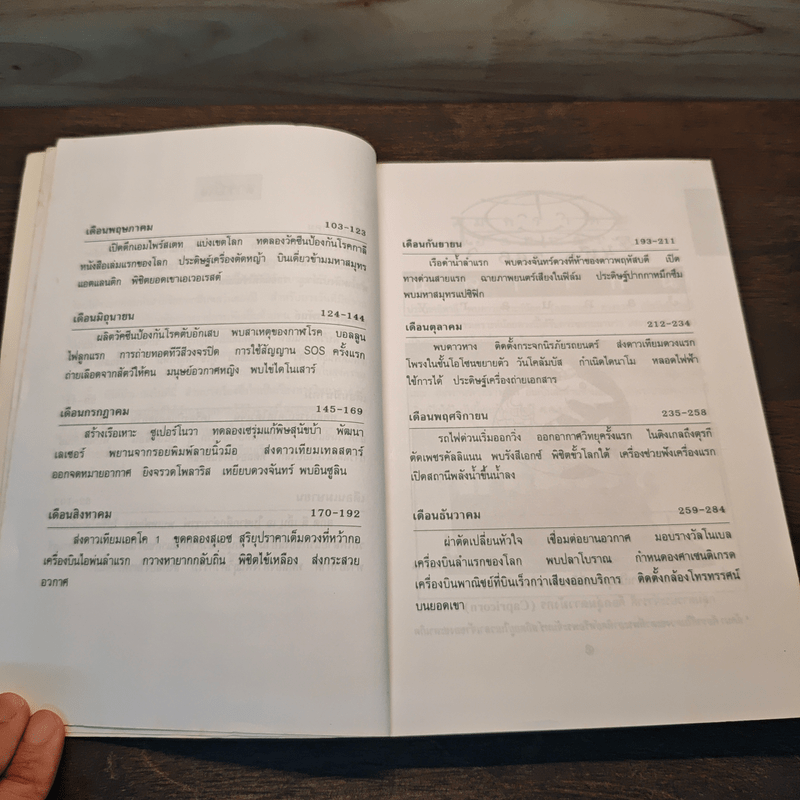 เดือนพฤษภาคม 103-123
เปิดตึกเอมไพร์สเตท แบ่งเขตโลก ทดลองวัคซีนป้องกันโรคกาลี
หนังสือเล่มแรกของโลก ประดิษฐ์เครื่องตัดหญ้า บินเดี่ยวข้ามมหาสมุทร
แอตแลนติก พิชิตยอดเขาเอเวอเรสต์
เดือนมิถุนายน 124-144
ผลิตวัคซีนป้องกันโรคตับอักเสบ พบสาเหตุของกาฬโรค บอลลูน
ไฟลูกแรก การถ่ายทอดทีวีสีวงจรปิด การใช้สัญญาน SOS ครั้งแรก
ถ่ายเลือดจากสัตว์ให้คน มนุษย์อวกาศหญิง พบไข่ไดโนเสาร์
เดือนกรกฎาคม 145-169
สร้างเรือเหาะ ซูเปอร์โนวา ทดลองเซรุ่มแก้พิษสุนัขบ้า พัฒนา
เลเซอร์ พยานจากรอยพิมพ์ลายนิ้วมือ ส่งดาวเทียมเทลสตาร์
ออกจดหมายอากาศ ยิงจรวดโพลาริส เหยียบดวงจันทร์ พบอินซูลิน
เดือนสิงหาคม 170-192
ส่งดาวเทียมเอคโค 1 ขุดคลองสุเอซ สุริยุปราคาเต็มดวงที่หว้ากอ
เครื่องบินไอพ่นลำแรก กวางหายากกลับถิ่น พิชิตไข้เหลือง ส่งกระสวย
อวกาศ
เดือนกันยายน 193-211
เรือดำน้ำลำแรก พบดวงจันทร์ดวงที่ห้าของดาวพฤหัสบดี เปิด
ทางด่วนสายแรก ฉายภาพยนตร์เสียงในฟิล์ม ประดิษฐ์ปากกาหมึกซึม
พบมหาสมุทรแปซิฟิก
เดือนตุลาคม 212-234
พบดาวหาง ติดตั้งกระจกนิรภัยรถยนตร์ ส่งดาวเทียมดวงแรก
โพรงในชั้นโอโซนขยายตัว วันโคลัมบัส กำเนิดไดนาโม หลอดไฟฟ้า
ใช้การได้ ประดิษฐ์เครื่องถ่ายเอกสาร
เดือนพฤศจิกายน 235-258
รถไฟด่วนเริ่มออกวิ่ง ออกอากาศวิทยุครั้งแรก ไนติงเกลถึงตุรกี
ตัดเพชรคัลลิแนน พบรังสีเอกซ์ พิชิตขั้วโลกใต้ เครื่องช่วยฟังเครื่องแรก
เปิดสถานีพลังน้ำขึ้นน้ำลง
เดือนธันวาคม 259-284
ผ่าตัดเปลี่ยนหัวใจ เชื่อมต่อยานอวกาศ มอบรางวัลโนเบล
เครื่องบินลำแรกของโลก พบปลาโบราณ กำหนดองศาเซนติเกรด
เครื่องบินพาณิชย์ที่บินเร็วกว่าเสียงออกบริการ ติดตั้งกล้องโทรทรรศน์
บนยอดเขา